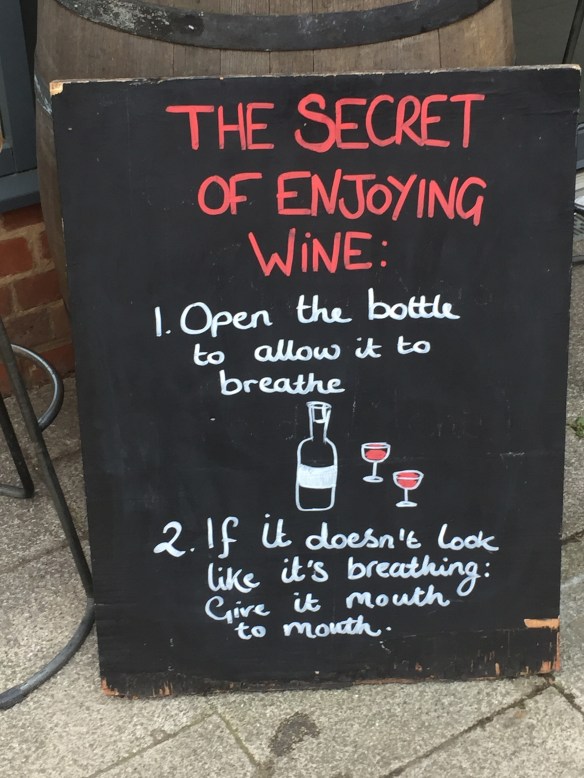 THE SECRET
OF ENJOYING
WINE:
1. Open the bottle
to allow it to
breathe
2. If it doesn't look
like it's breathing:
Give it mouth
to mouth.